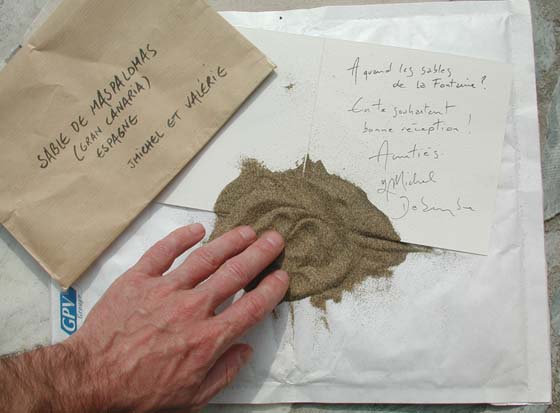 SABLE DE MASPALOMAS
(GRAN CANARIA)
ESPAGNE
JMICHEL ET VALERIE
A quand les sables
de la Fontaine ?
En te souhaitant
bonne réception !
Amitiés.
JMichel
GPV